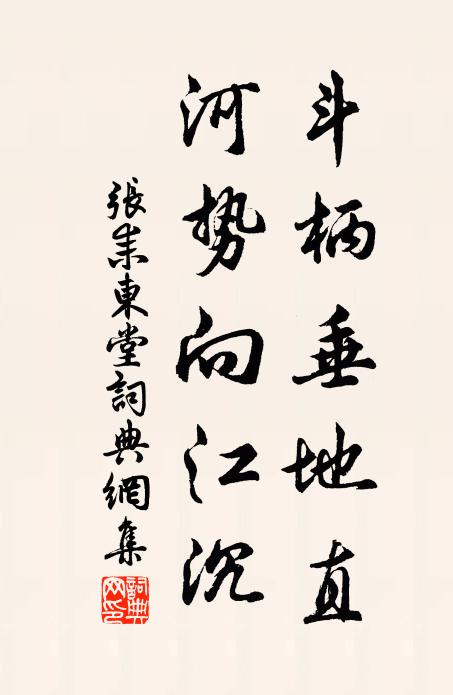 斗柄垂地直
河势向江沉
張耒東堂詞典網集
詞典网印